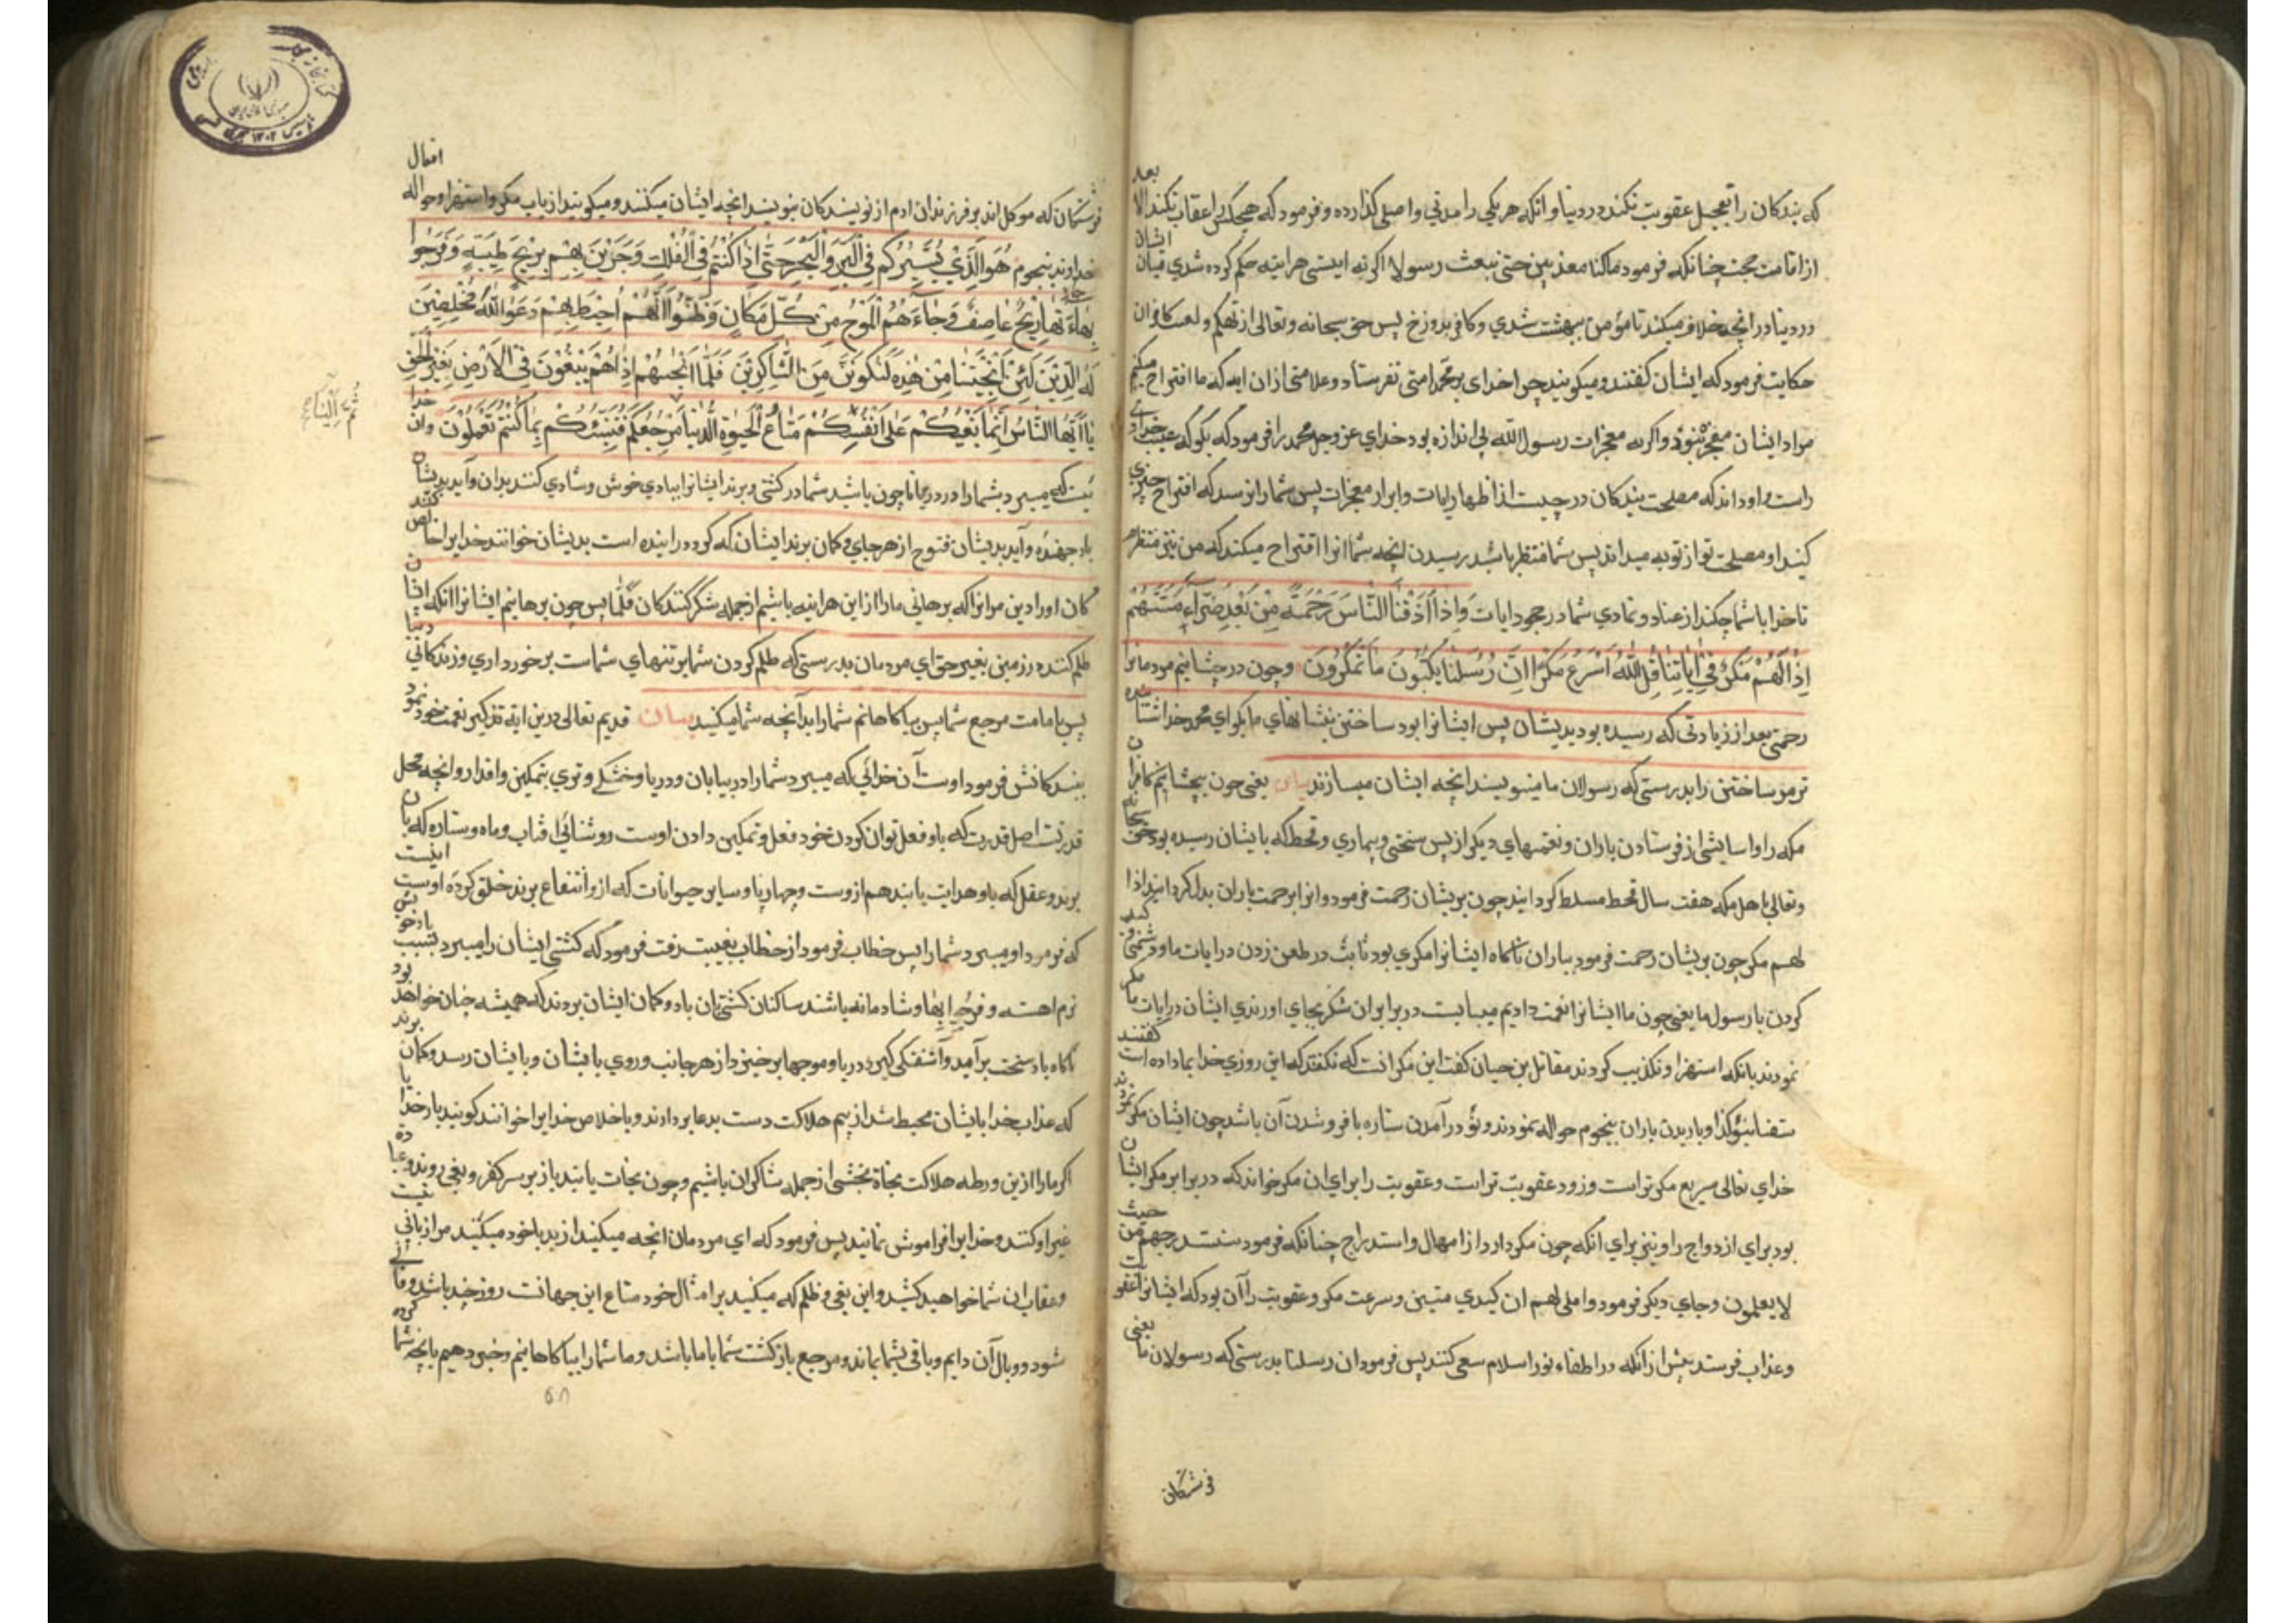 که بندکان را تعجیل عقوبت نکند در دنیا و انکه هر یکی را مدتی و اصلی کذارده و فرمود که هیچکس را عقاب نکند الا بعد
از اقامت حجت چنانکه فرمود ماکنا معذبین حتی نبعث رسولا اکر نه ایستی هراینه حکم کرده شدی میان ایشان
در دنیا در انچه خلاف میکنند تا مؤمن ببهشت شدی و کافر بدوزخ پس حق سبحانه و تعالی از تهکم و لعب کافران
حکایت فرمود که ایشان کفتند و میکویند چرا خدای بر محمد امتی نفرستاد و علامتی ازان ایه که ما اقتراح میکنیم
مراد ایشان معجز نبود و اکر نه معجزات رسول الله بی اندازه بود خدای عز و جل محمد را فرمود که بکو که غیب خدای
راست و او داند که مصلحت بندکان در چیست از اظهار ایات و ابراز معجزات پس شما را نرسد که اقتراح چیزی
کنید او مصلحت تو از تو به میداند پس شما منتظر باشید رسیدن انچه شما انرا اقتراح میکنید که من نیز منتظرم
تا خدا با شما چکند از عناد و تمادی شما در جحود ایات وَاِذَا اَذَقْنَا النَّاسَ رَحْمَةً مِنْ بَعْدِ ضَرَّاءَ مَسَّتْهُمْ
اِذَا لَهُمْ مَكْرٌ فِي اٰيَاتِنَا قُلِ اللّٰهُ اَسْرَعُ مَكْرًا اِنَّ رُسُلَنَا يَكْتُبُونَ مَا تَمْكُرُونَ و چون در چشانیم مردمانرا
رحمتی بعد از زیادتی که رسیده بود بدیشان پس ایشانرا بود ساختن بنشانهای ما بکو ای محمد خدا شتابنده
تر مر ساختن را بدرستی که رسولان ما مینویسند انچه ایشان میسازند بیان یعنی چون بچشانیم کافران
مکه را و اسایشی از فرستادن باران و نعمتهای دیکر از پس سختی و بیماری و قحط که بایشان رسیده بود حق سبحانه
و تعالی باهل مکه هفت سال قحط مسلط کردانید چون بریشان رحمت فرمود و انرا برحمت باران بدل کردانید اذا
لهم مکر چون بریشان رحمت فرمود بباران ناکاه ایشانرا مکری بود ثابت در طعن زدن در ایات ما و دشمنی و کید
کردن با رسول ما یعنی چون ما ایشانرا نعمت دادیم میبایست در برابر ان شکر بجای اورندی ایشان در ایات ما مکر
نمودند بانکه استهزا و تکذیب کردند مقاتل بن حیان کفت این مکر انت که نکفتند که این روزی خدا بما داده است کفتند
سقنا بنوء کذا و باریدن باران بنجوم حواله نمودند و نوء در آمدن ستاره با فرو شدن آن باشد چون ایشان مکر نمودند
خدای تعالی سریع مکر تر است و زود عقوبت تر است و عقوبت را برای ان مکر خواند که در برابر مکر ایشان
بود برای ازدواج را و نیز برای انکه چون مکر دارد از امهال و استدراج چنانکه فرمود سنستدرجهم من حیث
لا یعلمون و جای دیکر فرمود و املی لهم ان کیدی متین و سرعت مکر و عقوبت را آن بود که ایشانرا عقوبت
و عذاب فرستد پیش از انکه در اطفاء نور اسلام سعی کنند پس فرمود ان رسلنا بدرستی که رسولان ما یعنی
فرشتکان
فرشتکان که موکل اند بر فرزندان ادم از نویسندکان بنویسند انچه ایشان میکنند و میکویند از باب مکر و استهزا و حواله افعال
خداوند بنجوم هُوَ الَّذِي يُسَيِّرُكُمْ فِي الْبَرِّ وَالْبَحْرِ حَتّٰى اِذَا كُنْتُمْ فِي الْفُلْكِ وَجَرَيْنَ بِهِمْ بِرِيحٍ طَيِّبَةٍ وَفَرِحُوا
بِهَا جَاءَتْهَا رِيحٌ عَاصِفٌ وَجَاءَهُمُ الْمَوْجُ مِنْ كُلِّ مَكَانٍ وَظَنُّوا اَنَّهُمْ اُحِيطَ بِهِمْ دَعَوُا اللّٰهَ مُخْلِصِينَ
لَهُ الدِّينَ لَئِنْ اَنْجَيْتَنَا مِنْ هٰذِهِ لَنَكُونَنَّ مِنَ الشَّاكِرِينَ فَلَمَّا اَنْجٰيهُمْ اِذَا هُمْ يَبْغُونَ فِي الْاَرْضِ بِغَيْرِ الْحَقِّ
يَا اَيُّهَا النَّاسُ اِنَّمَا بَغْيُكُمْ عَلٰى اَنْفُسِكُمْ مَتَاعَ الْحَيٰوةِ الدُّنْيَا مَرْجِعُكُمْ فَنُنَبِّئُكُمْ بِمَا كُنْتُمْ تَعْمَلُونَ و ان خدا
ثم الینا
یست که میبرد شما را در دریا تا چون باشید شما در کشتی و برند ایشانرا ببادی خوش و شادی کنند بدان و آید بدیشان
باد جهنده و آید بدیشان فتوح از هر جای و کمان برند ایشان که کرد در اینده است بدیشان خوانند خدایرا خالص کنند
کان او را دین مر انرا که برهانی ما را از این هراینه باشیم از جمله شکر کنندکان فلما پس چون برهانیم ایشانرا انکه ایشان
ظلم کننده در زمین بغیر حق ای مردمان بدرستی که ظلم کردن شما بر تنهای شماست برخورداری و زندکانی دنیا
پس با ماست مرجع شما پس بیاکاهانیم شما را بدآنچه شما میکنید بیان قدیم تعالی درین ایة تذکیر نعمت خود نمود
بندکانش فرمود اوست آن خدائی که میبرد شما را در بیابان و دریا و خشکی و تری بتمکین و اقدار و انچه محل
قدرتت اصل قدرت که باو فعل توان کردن خود فعل و تمکین دادن اوست روشنائی افتاب و ماه و ستاره که بان
برند و عقل که باو هدایت یابند هم ازوست و چهارپا و سایر حیوانات که ازو انتفاع برند خلق کرده اوست اینست
که فرمود او میبرد شما را پس خطاب فرمود از خطاب بغیبت رفت فرمود که کشتی ایشان را میبرد بسبب باد خوش
نرم اهسته و فرحوا بها و شادمانه باشند ساکنان کشتی بان باد و کمان ایشان بردند که همیشه چنان خواهد بود
ناکاه باد سخت برآمد و آشفتکی کیرد دریا و موجها برخیزد از هر جانب و روی بایشان و بایشان رسد و کمان برند
که عذاب خدا بایشان محیط شد از بیم هلاکت دست بدعا بردارند و باخلاص خدایرا خوانند کویند بار خدایا
اکر ما را ازین ورطه هلاکت نجاة بخشی از جمله شاکران باشیم و چون نجات یابند باز بر سر کفر و بغی روند و عبادت
غیر او کنند و خدایرا فراموش نمایند پس فرمود که ای مردمان انچه میکنید از بد با خود میکنید
و عقاب ان شما خواهید کشید و این بغی و ظلم که میکنید بر امثال خود متاع این جهانت روز چند باشد و فانی
شود و وبال آن دایم و باقی بشما بماند و مرجع بازکشت شما با ما باشد و ما شما را بیاکاهانیم و خبر دهیم بانچه شما کرده
۵۸